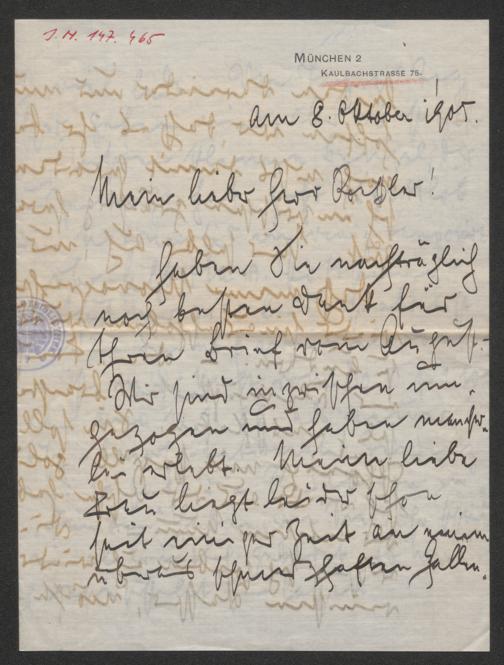 J. N. 147.465
MÜNCHEN 2
KAULBACHSTRASSE 75.
am 8. Oktober 1905.
Mein lieber Herr Roessler!
Haben Sie nachträglich
noch besten Dank für
Ihren Brief vom August.
Wir sind inzwischen um-
gezogen und haben mancher-
lei erlebt. Meine liebe
Frau liegt leider schon
seit einiger Zeit an einem
überaus schmerzhaften Gallen-